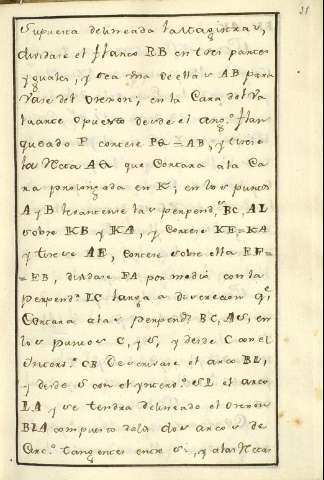 31
Supuesta delineada la Magistral,
dividase el flanco RB en tres partes
yguales, y sea una de ellas AB para
vase del Orejon; en la Cara del Va
luarte opuesto desde el ang.º flan
queado P cortese PQ = AB, y tirese
la Recta AQ que Cortara a la Ca
ra prolongada en K; en los puntos
A y B levantense las perpend.s BC, AL
sobre KB y KA, y Cortese KE=KA
y tirese AE, cortese sobre ella EF=
=EB, dividase FA por medio con la
perpend.r LC larga a discrecion q.e
Cortara a las perpend.s BC, AS, en
los puntos C, y S, y desde C con el
ynterv.º CB Descrivase el arco BL,
y desde S con el yntero.º SL el arco
LA y se tendra delineado el Orejon
BLA compuesto de los dos arcos de
Circ.º tangentes entre si, y a las Rectas